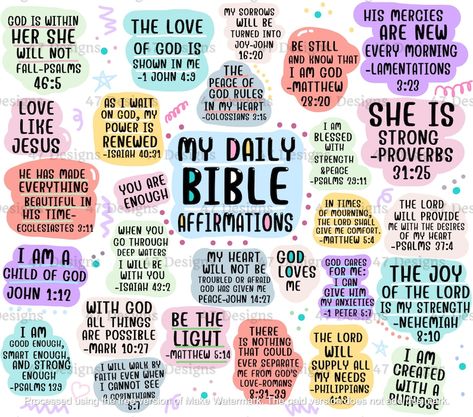 GOD IS WITHIN
HER SHE
WILL NOT
FALL-PSALMS
46:5
THE LOVE
OF GOD IS
SHOWN IN ME
-1 JOHN 4:9
MY SORROWS
WILL BE
TURNED INTO
JOY-JOHN
16:20
BE STILL
AND KNOW THAT
I AM GOD
-MATTHEW
28:20
HIS MERCIES
ARE NEW
EVERY MORNING
-LAMENTATIONS
3:23
THE
PEACE OF
GOD RULES
IN MY HEART
-COLOSSIANS 3:15
LOVE
LIKE
JESUS
AS I WAIT
ON GOD, MY
POWER IS
RENEWED
-ISAIAH 40:31
MY DAILY
BIBLE
AFFIRMATIONS
I AM
BLESSED
WITH
STRENGTH
&PEACE
-PSALMS 29:11
SHE IS
STRONG
-PROVERBS
31:25
HE HAS MADE
EVERYTHING
BEAUTIFUL IN
HIS TIME-
ECCLESIASTES 3:11
YOU ARE
ENOUGH
IN TIMES
OF MOURNING,
THE LORD SHALL
GIVE ME COMFORT.
-MATTHEW 5:4
THE LORD
WILL PROVIDE
ME WITH THE DESIRES
OF MY HEART
-PSALMS 37:4
I AM A
CHILD OF GOD
JOHN 1:12
WHEN YOU
GO THROUGH
DEEP WATERS
I WILL BE
WITH YOU
-ISAIAH 43:2
MY HEART
WILL NOT BE
TROUBLED OR AFRAID
GOD HAS GIVEN ME
PEACE-JOHN 14:27
GOD
LOVES
ME
GOD CARES
FOR ME;
I CAN
GIVE HIM
MY ANXIETIES
-1 PETER 5:7
THE JOY
OF THE LORD
IS MY STRENGTH
-NEHEMIAH
8:10
I AM
GOOD ENOUGH,
SMART ENOUGH,
AND STRONG
ENOUGH
-PSALMS 139
WITH GOD
ALL THINGS
ARE POSSIBLE
-MARK 10:27
BE THE
LIGHT
-MATTHEW 5:14
THERE
IS NOTHING
THAT COULD
EVER SEPARATE
ME FROM GOD'S
LOVE-ROMANS
8:31-39
THE LORD
WILL
SUPPLY ALL
MY NEEDS
-PHILIPPIANS
4:18
I AM
CREATED
WITH A
PURPOSE
I WILL WALK BY
FAITH EVEN WHEN
I CANNOT SEE
-2 CORINTHIANS
5:7
47 Designs
Processed using the free version of Make Watermark. The paid version does not add this mark.